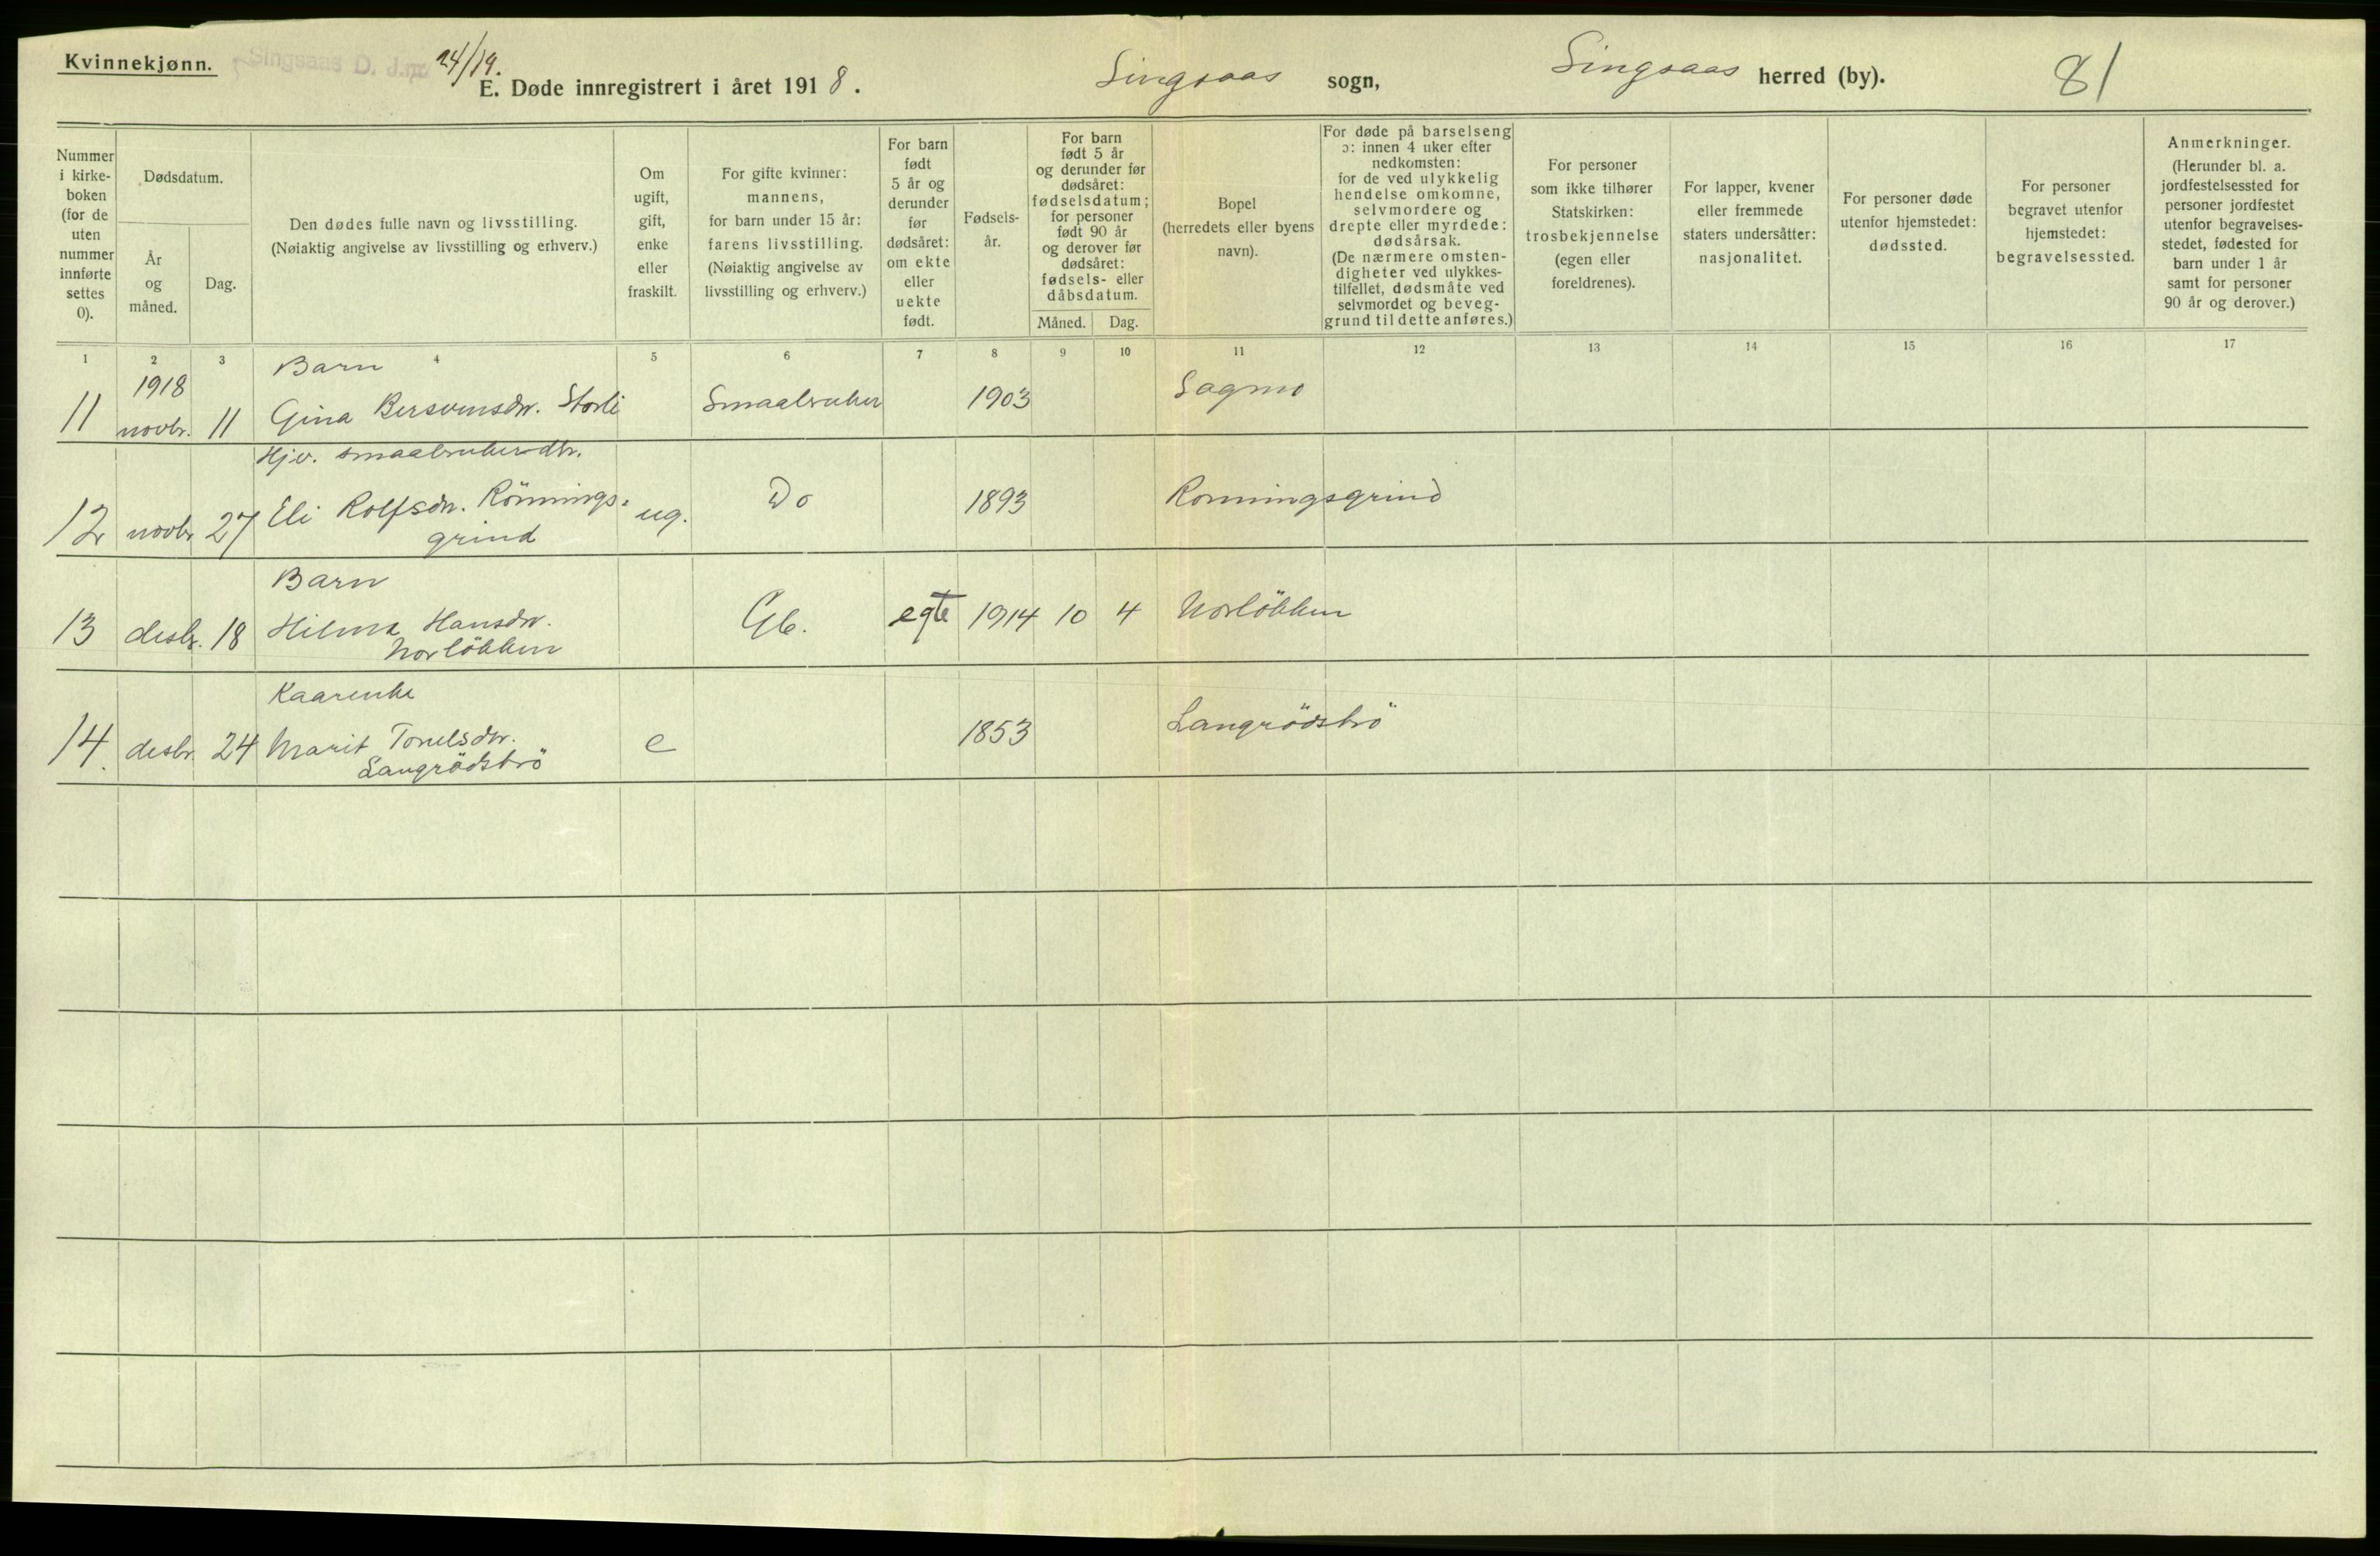 Kvinnekjønn.
Singsaas D. J.nr 24/19.
E. Døde innregistrert i året 1918.
Singsaas sogn,
Singsaas herred (by).
81
Nummer
i kirke-
boken
(for de
uten
nummer
innførte
settes
0).
Dødsdatum.
År
og
måned.
Dag.
Den dødes fulle navn og livsstilling.
(Nøiaktig angivelse av livsstilling og erhverv.)
Om
ugift,
gift,
enke
eller
fraskilt.
For gifte kvinner:
mannens,
for barn under 15 år:
farens livsstilling.
(Nøiaktig angivelse av
livsstilling og erhverv.)
For barn
født
5 år og
derunder
før
dødsåret:
om ekte
eller
uekte
født.
Fødsels-
år.
For barn
født 5 år
og derunder før
dødsåret:
fødselsdatum;
for personer
født 90 år
og derover før
dødsåret:
fødsels- eller
dåbsdatum.
Måned.
Dag.
Bopel
(herredets eller byens
navn).
For døde på barselseng
ɔ: innen 4 uker efter
nedkomsten:
for de ved ulykkelig
hendelse omkomne,
selvmordere og
drepte eller myrdede:
dødsårsak.
(De nærmere omsten-
digheter ved ulykkes-
tilfellet, dødsmåte ved
selvmordet og beveg-
grund til dette anføres.)
For personer
som ikke tilhører
Statskirken:
trosbekjennelse
(egen eller
foreldrenes).
For lapper, kvener
eller fremmede
staters undersåtter:
nasjonalitet.
For personer døde
utenfor hjemstedet:
dødssted.
For personer
begravet utenfor
hjemstedet:
begravelsessted.
Anmerkninger.
(Herunder bl. a.
jordfestelsessted for
personer jordfestet
utenfor begravelses-
stedet, fødested for
barn under 1 år
samt for personer
90 år og derover.)
1 2 3 4 5 6 7 8 9 10 11 12 13 14 15 16 17
1918 Barn
11 novbr. 11 Gina Bersvensdr. Storli Smaabruker 1903 Sagmo
Hjv. smaabrukerdtr.
12 novbr 27 Eli Rolfsdr. Rönnings- ug. Do 1893 Ronningsgrind
grind
Barn
13 desbr. 18 Hilma Hansdr. Gb. egte 1914 10 4 Norlökken
Norlökken
Kaarenke
14. desbr. 24 Marit Tomelsdtr. e 1853 Langrödsbrö
Langrödsbrö